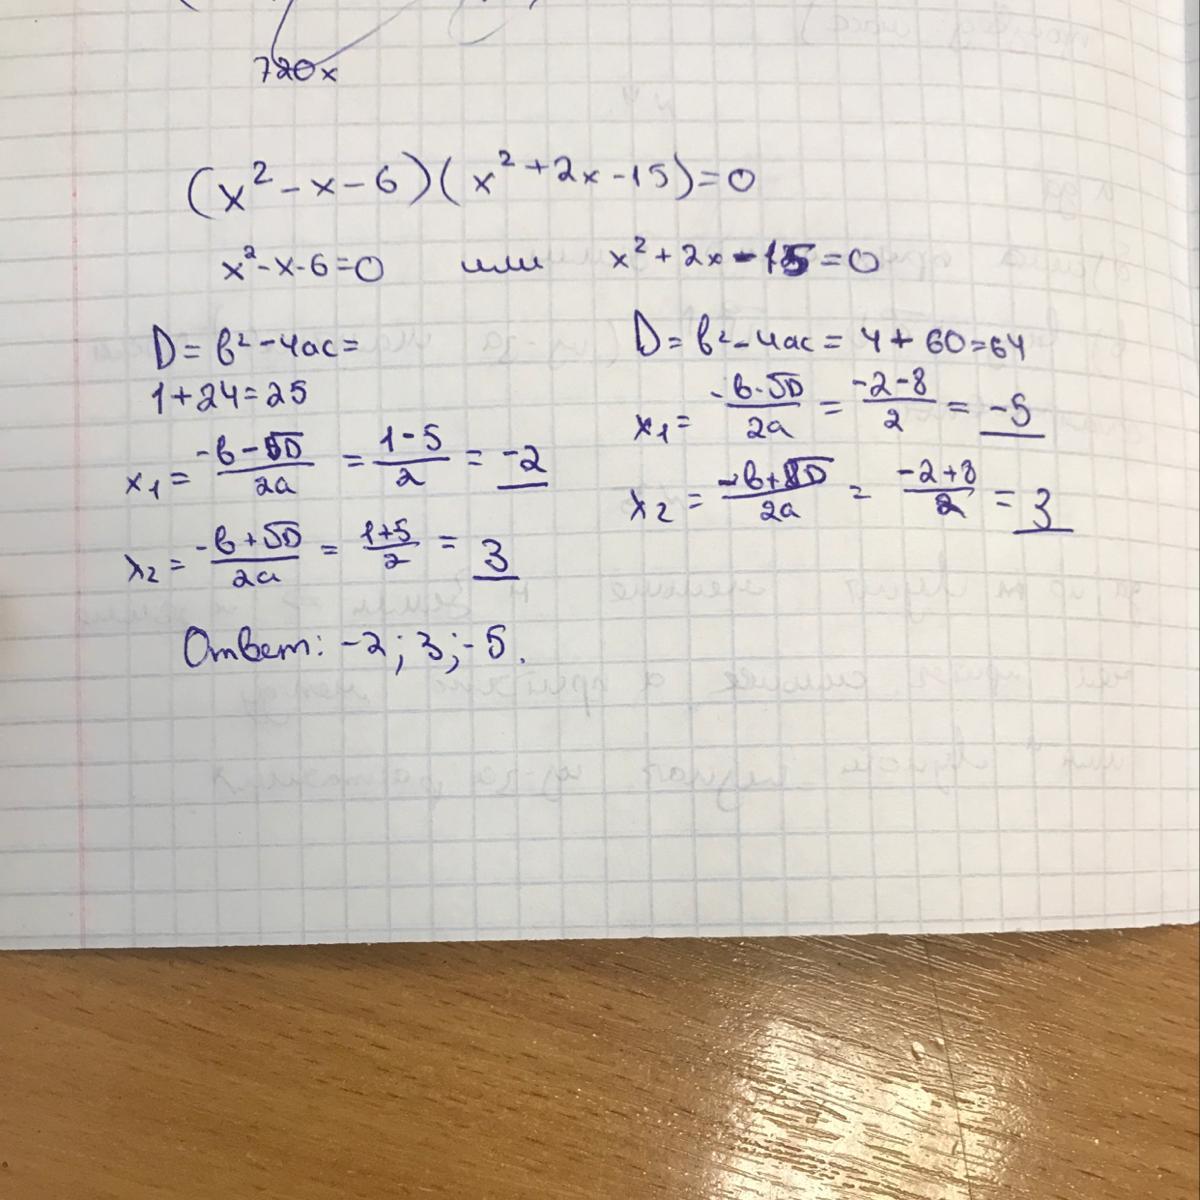 720x
(x² - x - 6)(x² + 2x - 15) = 0
x² - x - 6 = 0 или x² + 2x - 15 = 0
D = в² - 4ac =
1 + 24 = 25
x₁ = (-в - √D)/2a = (1 - 5)/2 = -2
x₂ = (-в + √D)/2a = (1 + 5)/2 = 3
D = в² - 4ac = 4 + 60 = 64
x₁ = (-в - √D)/2a = (-2 - 8)/2 = -5
x₂ = (-в + √D)/2a = (-2 + 8)/2 = 3
Ответ: -2; 3; -5.